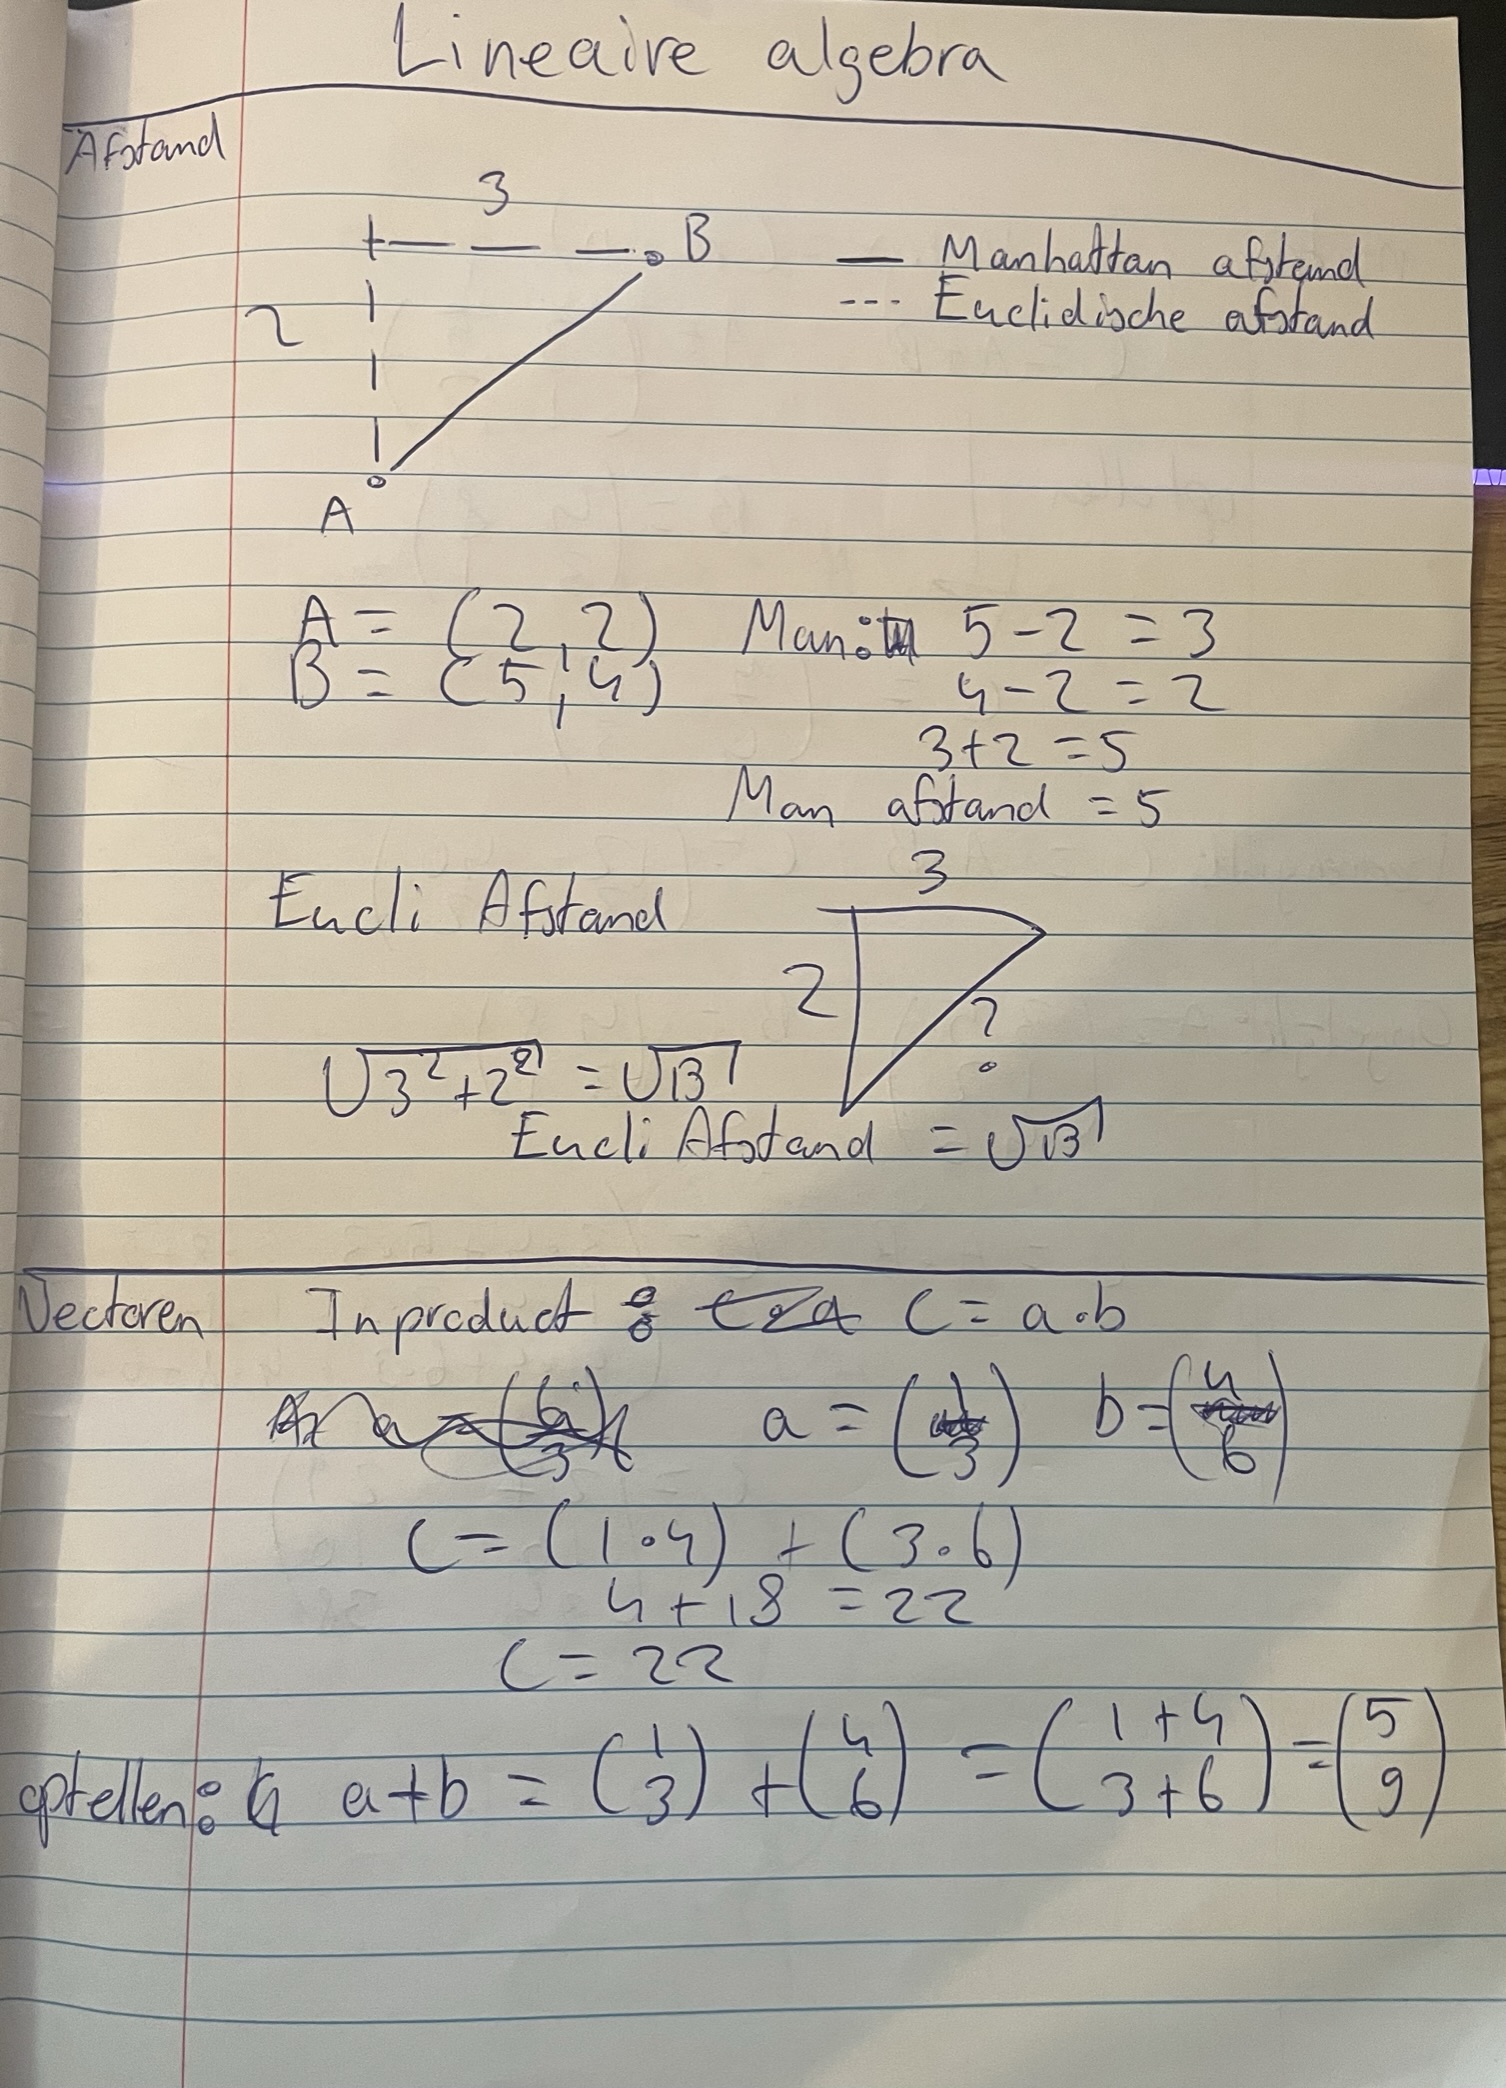 Lineaire algebra
Afstand
3
B
— Manhattan afstand
--- Euclidische afstand
2
A
A = (2,2) Man: 5-2 = 3
B = (5,4) 4-2 = 2
3+2 = 5
Man afstand = 5
Eucli Afstand
3
2
?
√3²+2² = √13
Eucli Afstand = √13
Vectoren Inproduct: C = a·b
a = (1 3) b = (4 6)
C = (1·4) + (3·6)
4+18 = 22
C = 22
optellen: a+b = (1 3) + (4 6) = (1+4 3+6) = (5 9)